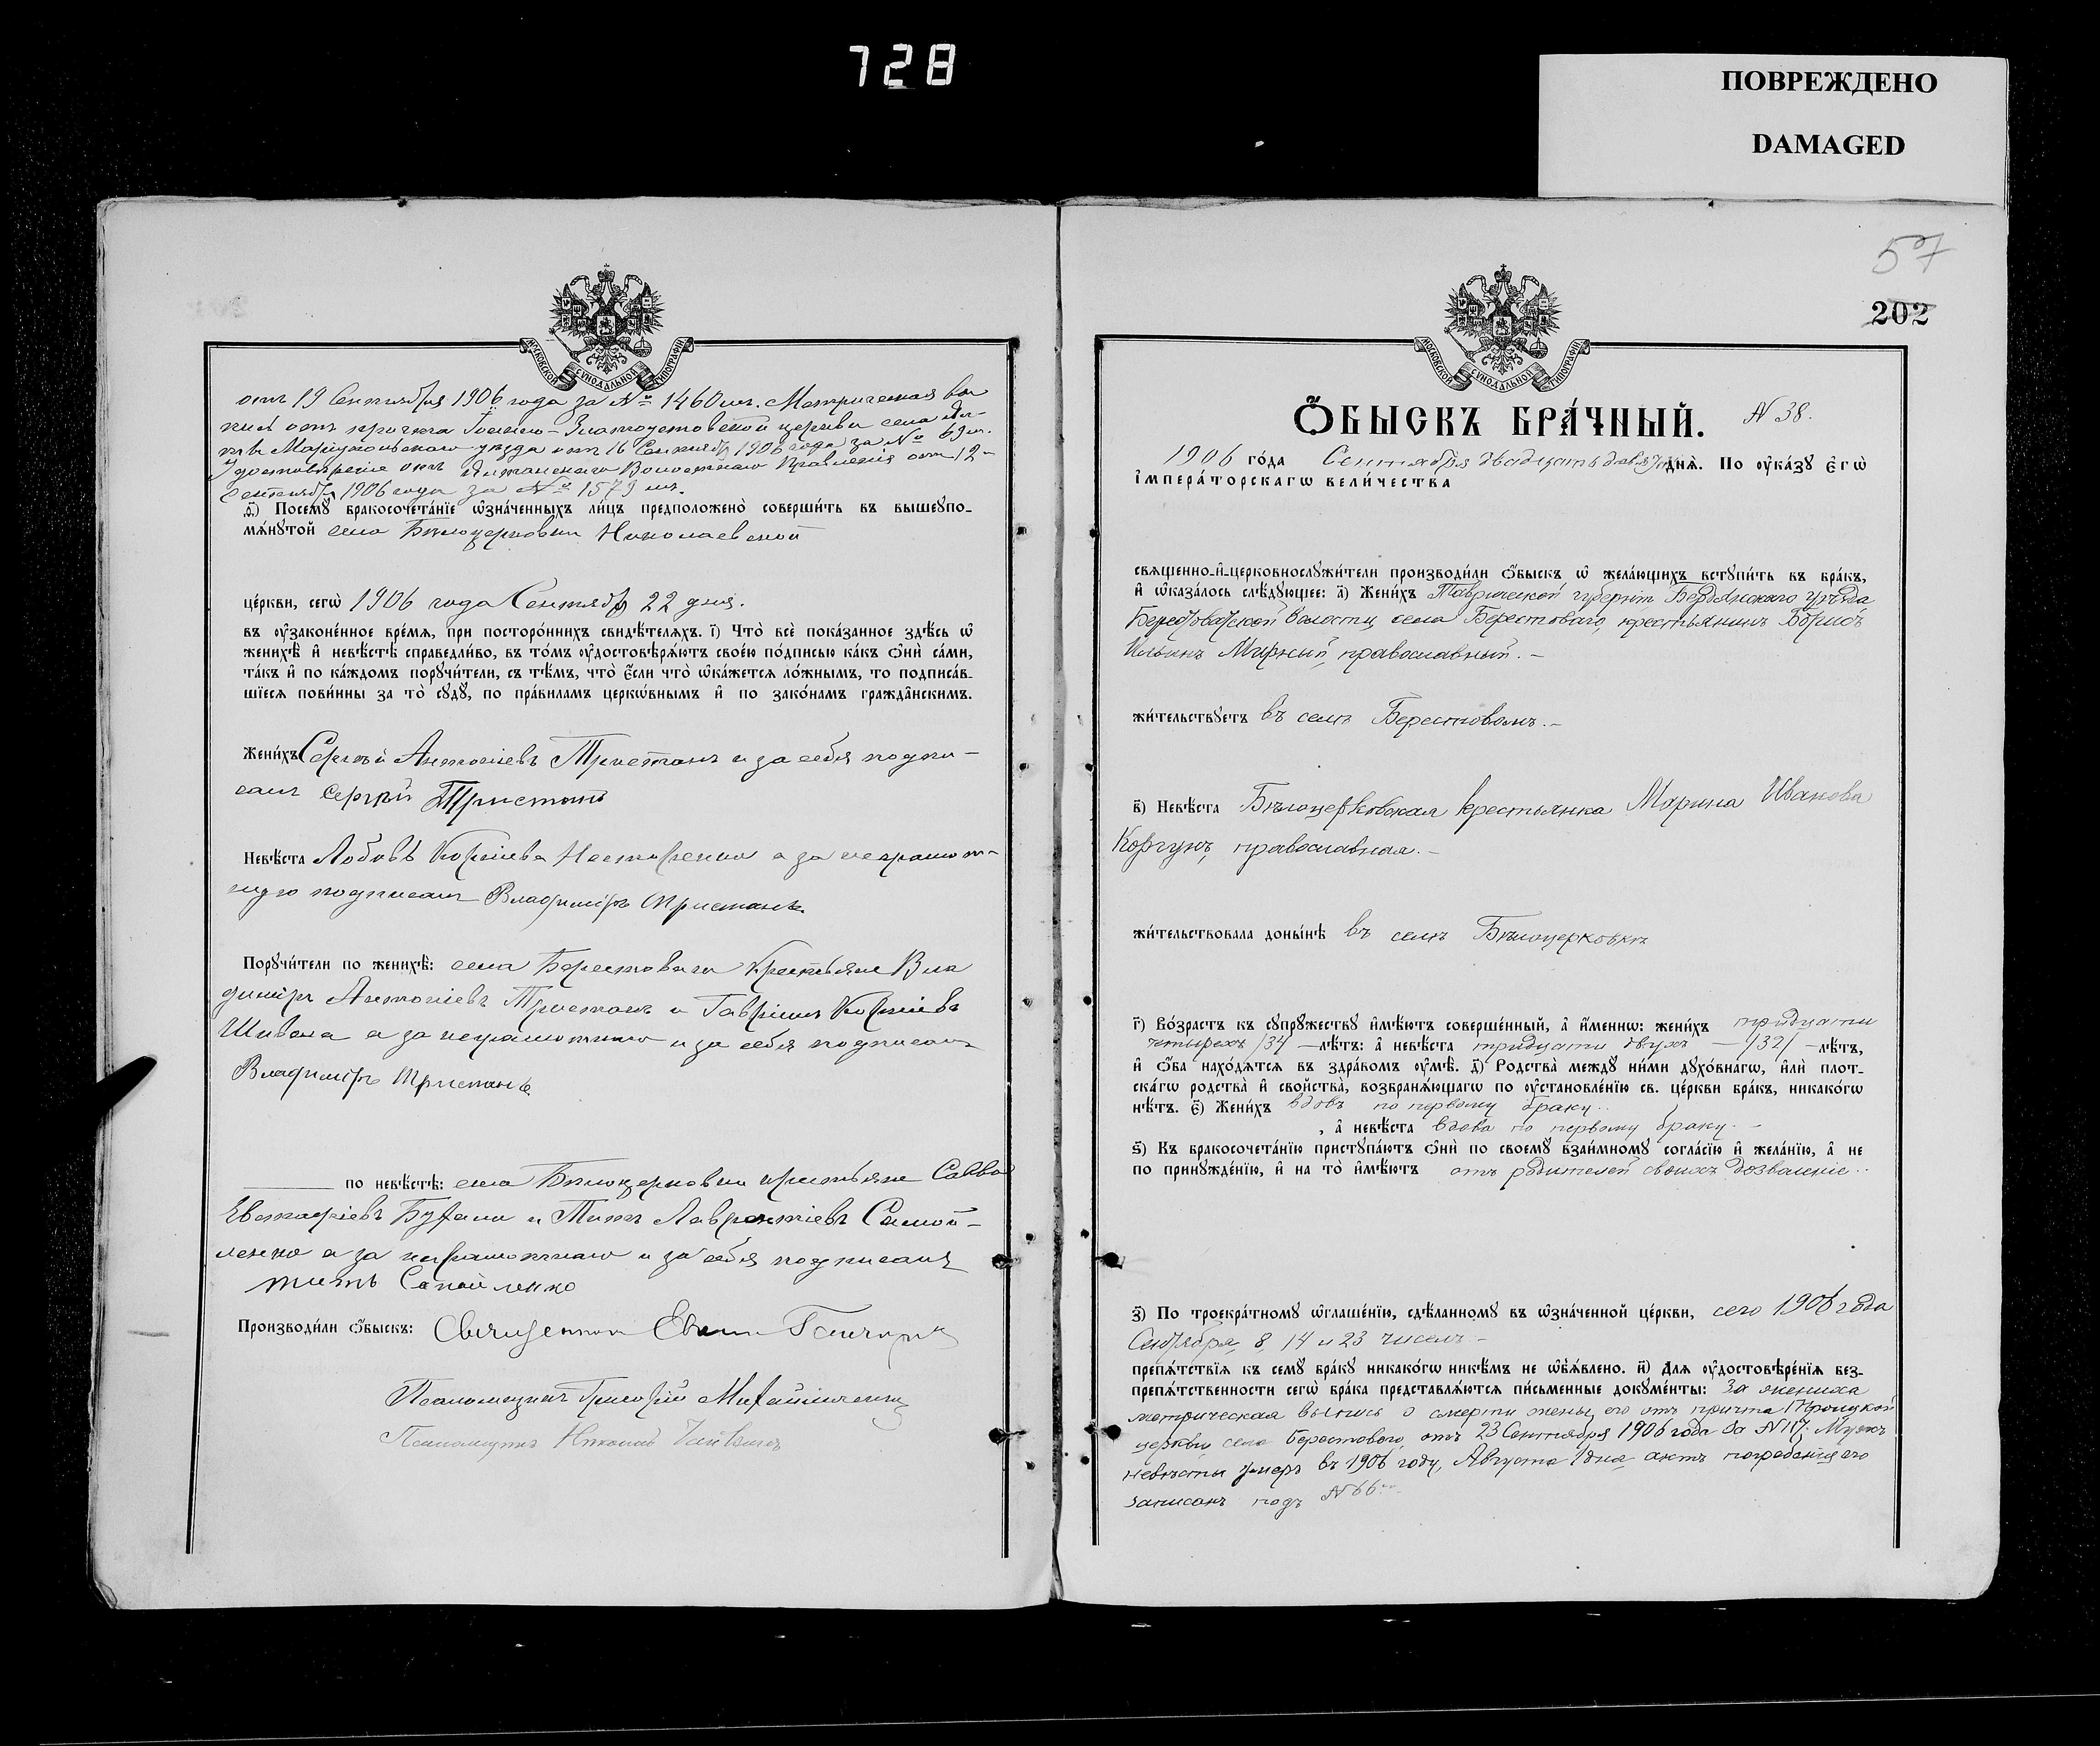 728
ПОВРЕЖДЕНО
DAMAGED
57
202
МОСКОВСКОЙ СУНОДАЛЬНОЙ ТИПОГРАФІИ
отъ 19 Сентября 1906 года за № 1460мъ. Метрическая вы
пись отъ причта Іоанно-Златоустовской церкви села
Маріупольскаго уѣзда отъ 16 Сентября 1906 года за № 69м.
Удостовѣреніе отъ Волостнаго Правленія отъ 12-
Сентября 1906 года за № 1579 мъ.
ѳ҃) Посемꙋ бракосочета́нїе ѡ҆зна́ченныхъ ли́цъ предположено̀ соверши́ть въ вышеꙋпо-
мѧ́нꙋтой села Бѣлоцерковки Николаевской
це́ркви, сегѡ̀ 1906 года Сентября 22 дня.
въ ᲂу҆зако́не́нное вре́мѧ, при посторо́ннихъ свидѣ́телѧхъ. і҃) Что̀ всѐ пока́занное здѣ́сь ѡ҆
женихѣ̀ и҆ невѣ́стѣ справедли́во, въ то́мъ ᲂу҆достовѣрѧ́ютъ свое́ю по́дписью ка́къ ѻ҆нѝ са́ми,
та́къ и҆ по ка́ждомъ порꙋчи́тели, съ тѣ́мъ, что̀ є҆́сли что̀ ѡ҆ка́жетсѧ ло́жнымъ, то подписа́в-
шїесѧ пови́нны за то̀ сꙋдꙋ̀, по пра́виламъ церкѡ́внымъ и҆ по зако́намъ гражда̑нскимъ.
Жени́хъ Сергѣй Антоніевъ Тристанъ и за себя подпи-
салъ Сергѣй Тристанъ
Невѣ́ста Любовь Корніева Нестеренко а за неграмот-
ную подписалъ Владиміръ Тристанъ.
Порꙋчи́тели по женихѣ̀: села Берестоваго Крестьяне Вла
диміръ Антоніевъ Тристанъ и Гавріилъ Корніевъ
а за неграмотнаго и за себя подписалъ
Владиміръ Тристанъ.
по невѣ́стѣ: села Бѣлоцерковки крестьяне Савва
Евстафіевъ и Титъ Лаврентіевъ Самой-
ленко а за неграмотнаго и за себя подписалъ
Титъ Самойленко
Производи́ли ѻ҆́быскъ: Священникъ
Псаломщикъ Григорій
Псаломщикъ Николай
МОСКОВСКОЙ СУНОДАЛЬНОЙ ТИПОГРАФІИ
Ѻ҆́БЫСКЪ БРА́ЧНЫЙ. № 38.
1906 го́да Сентября двадцать девят дня̀. По ᲂу҆ка́зꙋ є҆гѡ̀
і҆мпера́торскагѡ вели́чества
свѧще́нно-и҆-церковнослꙋжи́тели производи́ли ѻ҆́быскъ ѡ҆ жела́ющихъ встꙋпи́ть въ бра́къ,
и҆ ѡ҆каза́лось слѣ́дꙋющее: а҃) Жени́хъ Таврической губерніи, Бердянскаго уѣзда
Берестоватской волости, села Берестоваго, крестьянинъ Борисъ
Ильинъ Мирный, православный. –
жи́тельствꙋетъ въ селѣ Берестовомъ. –
в҃) Невѣ́ста Бѣлоцерковская крестьянка Марина Иванова
Коргунъ, православная. –
жи́тельствовала доны́нѣ въ селѣ Бѣлоцерковкѣ
г҃) Во́зрастъ къ сꙋпрꙋжествꙋ и҆мѣ́ютъ соверше́нный, а҆ и҆́меннѡ: жени́хъ тридцати
четырехъ /34 – лѣ́тъ: а҆ невѣ́ста тридцати двухъ – /32/ – лѣ́тъ,
и҆ ѻ҆́ба нахо́дѧтсѧ въ здра́вомъ ᲂу҆мѣ̀. д҃) Родства̀ междꙋ ни́ми дꙋхо́внагѡ, и҆лѝ плот-
ска́гѡ родства̀ и҆ свойства̀, возбранѧ́ющагѡ по ᲂу҆становле́нїю св. це́ркви бра́къ, никако́гѡ
нѣ́тъ. є҃) Жени́хъ вдовъ по первому браку..
, а҆ невѣ́ста вдова по первому браку. –
ѕ҃) Къ бракосочета́нїю пристꙋпа́ютъ ѻ҆нѝ по своемꙋ̀ взаи́мномꙋ согла́сїю и҆ жела́нїю, а҆ не
по принꙋжде́нїю, и҆ на то̀ и҆мѣ́ютъ отъ родителей своихъ дозволеніе..
з҃) По троекра́тномꙋ ѡ҆глаше́нїю, сдѣ́ланномꙋ въ ѡ҆зна́ченной це́ркви, сего 1906 года
Сентября, 8, 14 и 23 чиселъ –
препѧ́тствїѧ къ семꙋ̀ бра́кꙋ никако́гѡ никѣ́мъ не ѡ҆б̾ѧ́влено. и҃) Для ᲂу҆достовѣре́нїѧ без-
препѧ́тственности сегѡ̀ бра́ка представлѧ́ютсѧ пи́сьменные докꙋме́нты: За жениха
метрическая выпись о смерти жены его отъ причта Троицкой
церкви, села Берестоваго, отъ 23 Сентября 1906 года за № 117. Мужъ
невѣсты умеръ въ 1906 году, Августа 1 дня актъ погребенія его
записанъ подъ № 66мъ.